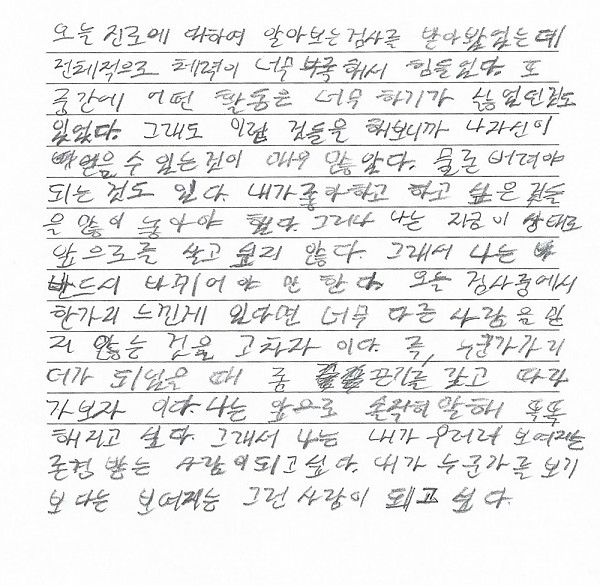 오늘 진로에 대하여 알아보는 검사를 받아봤었는데
전체적으로 체력이 너무 부족해서 힘들었다. 또
중간에 어떤 활동은 너무 하기가 싫었던것도
있었다. 그래도 이런 것들을 해보니까 나자신이
얻을 수 있는것이 매우 많았다. 물론 버려야
되는 것도 있다. 내가좋아하고 하고 싶은 것들
을 많이 놓아야 했다. 그러나 나는 지금이 상태로
앞으로를 살고 싶지 않다. 그래서 나는
반드시 바뀌어야 만 한다. 오늘 검사중에서
한가지 느낀게 있다면 너무 다른 사람을 믿
지 않는 것을 고치자 이다. 즉, 누군가가 리
더가 되었을 때 좀 끈기를 갖고 따라
가보자 이다 나는 앞으로 솔직히 말해 똑똑
해지고 싶다. 그래서 나는 내가 우러러 보여지는
존경 받는 사람이되고싶다. 내가 누군가를 보기
보다는 보여지는 그런 사람이 되고 싶다.